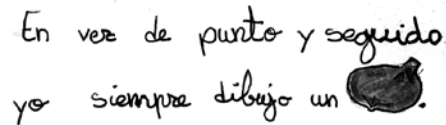 En vez de punto y seguido
yo siempre dibujo un .